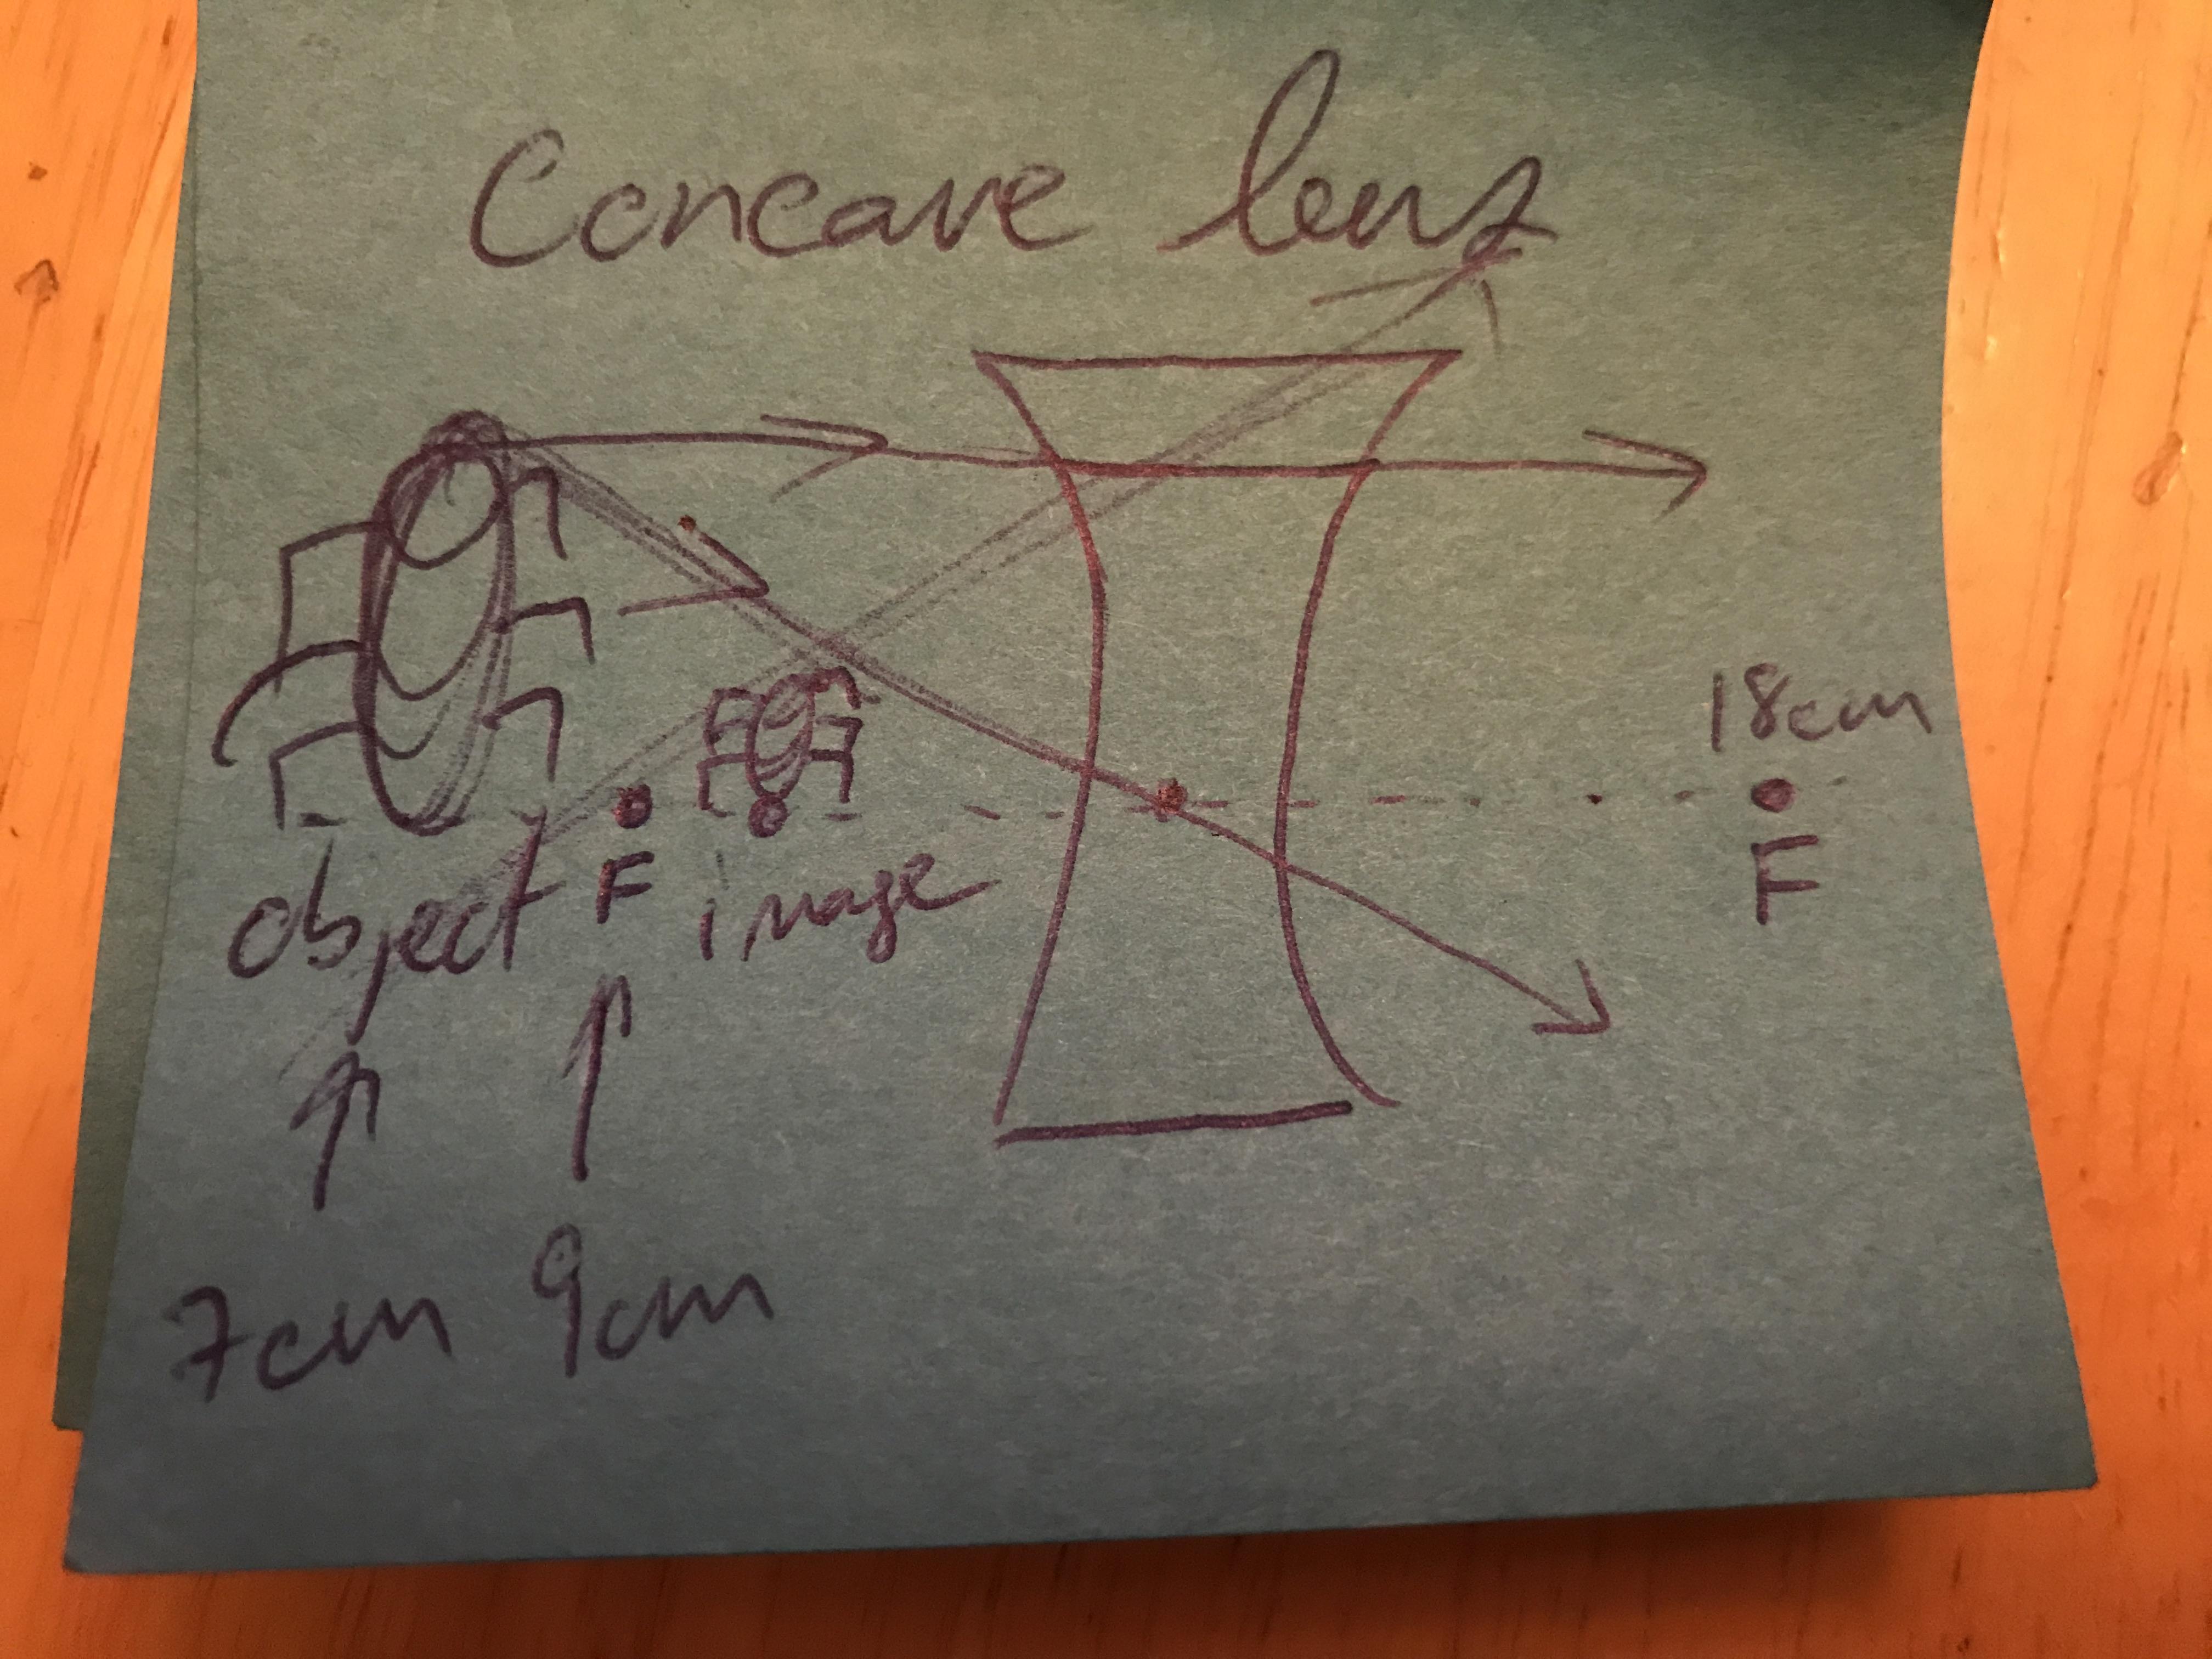 Concave lens
18cm
F
object F image
7cm 9cm